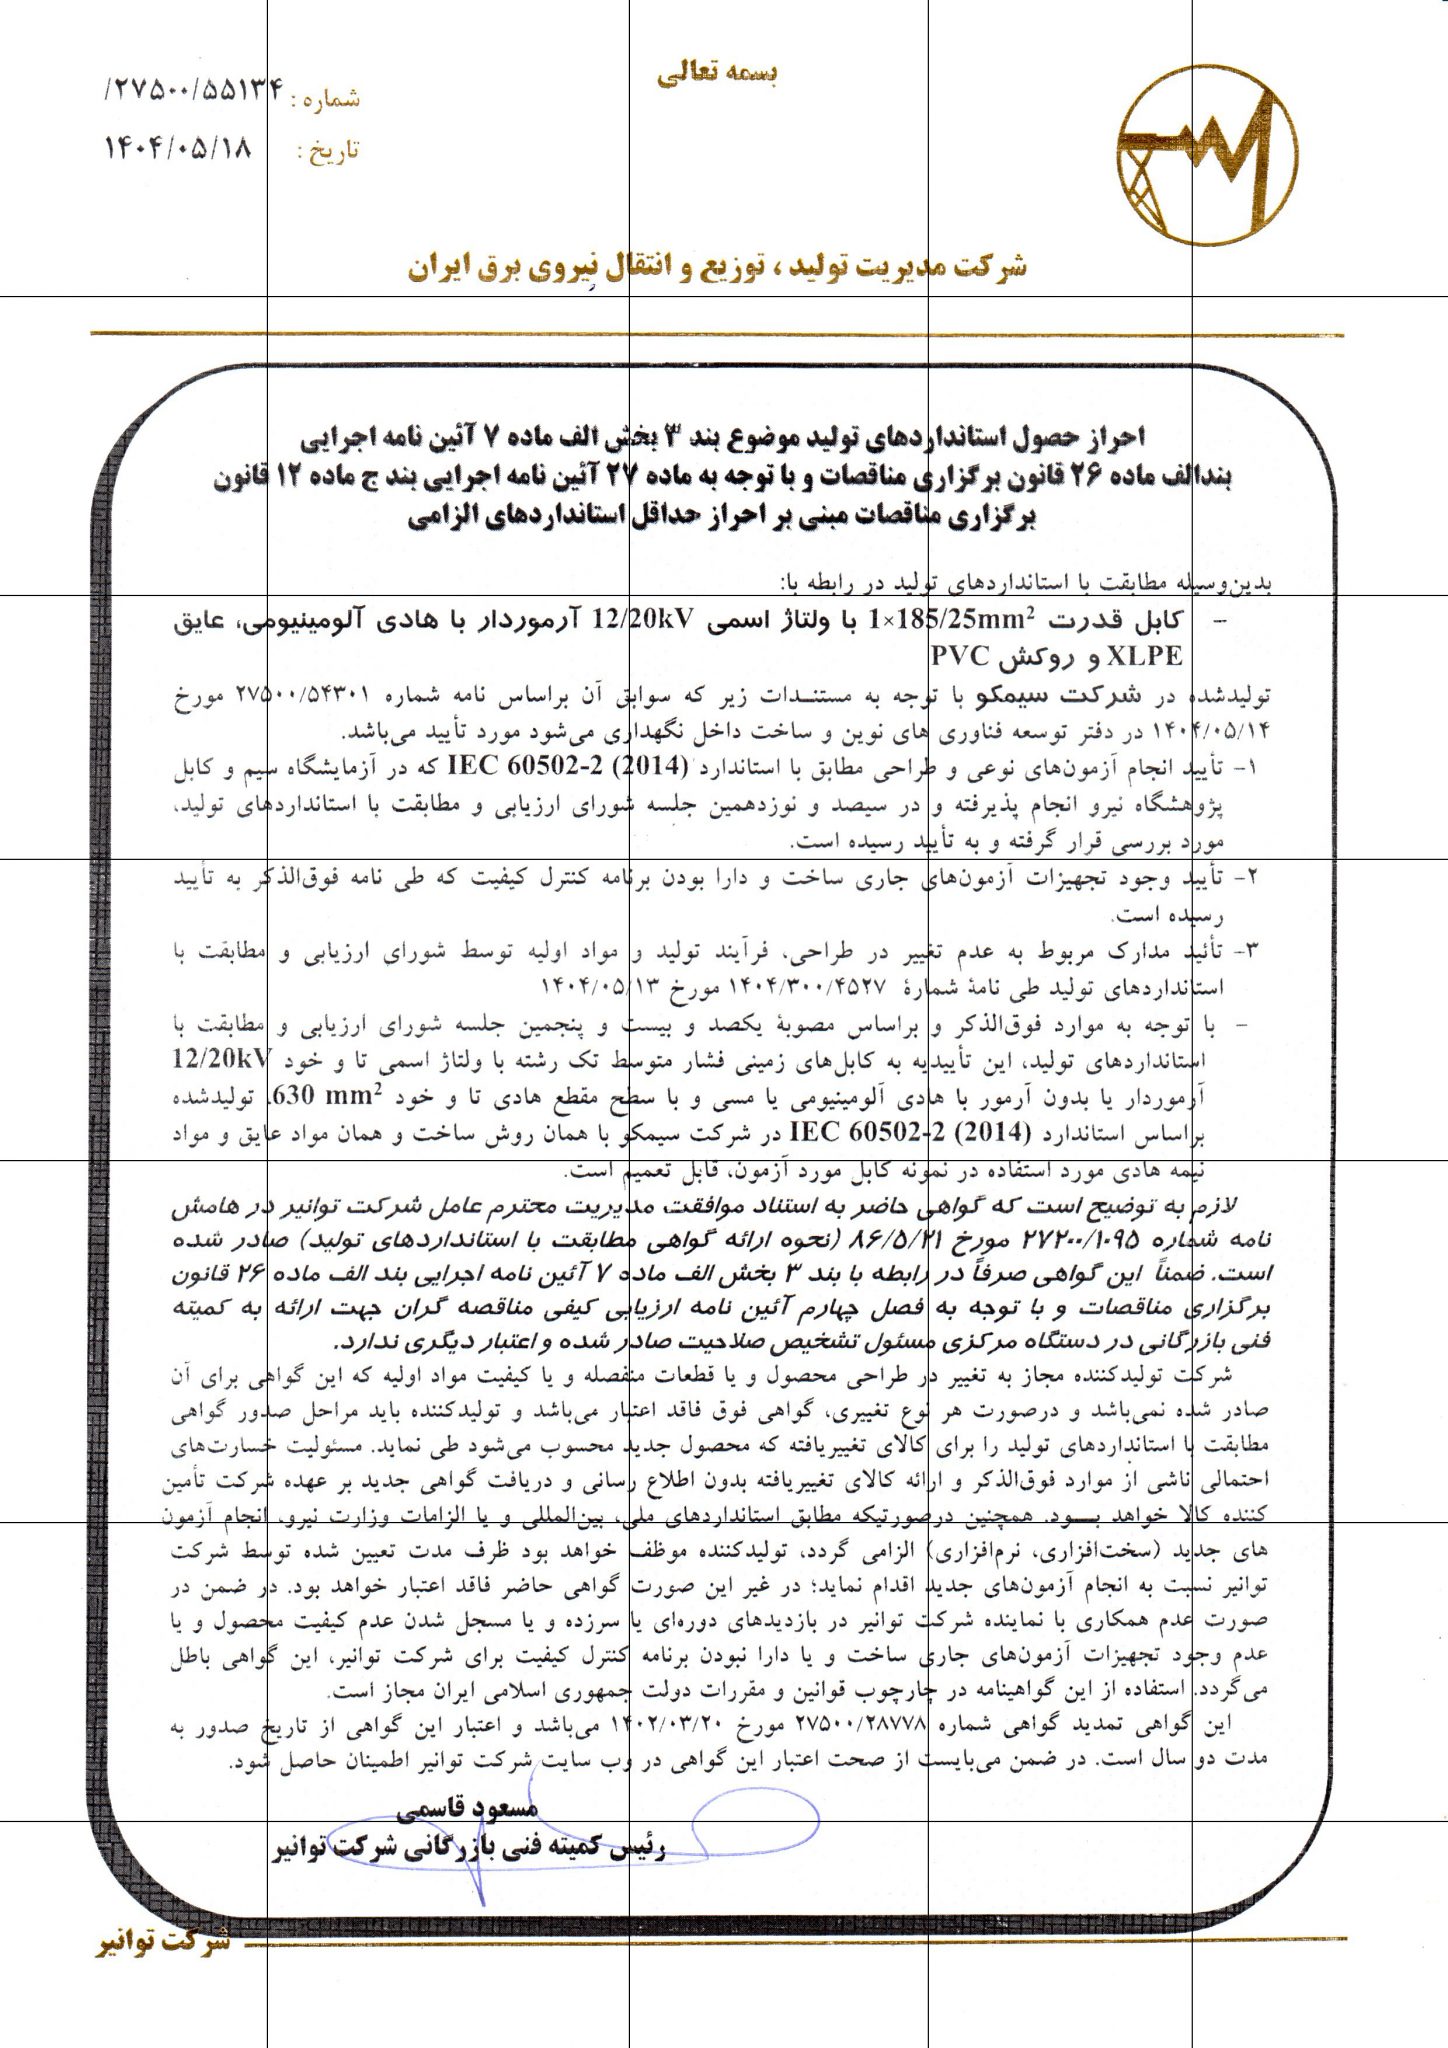 بسمه تعالی
شماره : ۲۷۵۰۰/۵۵۱۳۴/
تاریخ : ۱۴۰۴/۰۵/۱۸
شرکت مدیریت تولید ، توزیع و انتقال نیروی برق ایران
احراز حصول استانداردهای تولید موضوع بند ۳ بخش الف ماده ۷ آئین نامه اجرایی
بندالف ماده ۲۶ قانون برگزاری مناقصات و با توجه به ماده ۲۷ آئین نامه اجرایی بند ج ماده ۱۲ قانون
برگزاری مناقصات مبنی بر احراز حداقل استانداردهای الزامی
بدین‌وسیله مطابقت با استانداردهای تولید در رابطه با:
- کابل قدرت 1×185/25mm² با ولتاژ اسمی 12/20kV آرموردار با هادی آلومینیومی، عایق
XLPE و روکش PVC
تولیدشده در شرکت سیمکو با توجه به مستندات زیر که سوابق آن براساس نامه شماره ۲۷۵۰۰/۵۴۳۰۱ مورخ
۱۴۰۴/۰۵/۱۴ در دفتر توسعه فناوری های نوین و ساخت داخل نگهداری می‌شود مورد تأیید می‌باشد.
۱- تأیید انجام آزمون‌های نوعی و طراحی مطابق با استاندارد IEC 60502-2 (2014) که در آزمایشگاه سیم و کابل
پژوهشگاه نیرو انجام پذیرفته و در سیصد و نوزدهمین جلسه شورای ارزیابی و مطابقت با استانداردهای تولید،
مورد بررسی قرار گرفته و به تأیید رسیده است.
۲- تأیید وجود تجهیزات آزمون‌های جاری ساخت و دارا بودن برنامه کنترل کیفیت که طی نامه فوق‌الذکر به تأیید
رسیده است.
۳- تأئید مدارک مربوط به عدم تغییر در طراحی، فرآیند تولید و مواد اولیه توسط شورای ارزیابی و مطابقت با
استانداردهای تولید طی نامهٔ شمارهٔ ۱۴۰۴/۳۰۰/۴۵۲۷ مورخ ۱۴۰۴/۰۵/۱۳
- با توجه به موارد فوق‌الذکر و براساس مصوبهٔ یکصد و بیست و پنجمین جلسه شورای ارزیابی و مطابقت با
استانداردهای تولید، این تأییدیه به کابل‌های زمینی فشار متوسط تک رشته با ولتاژ اسمی تا و خود 12/20kV
آرموردار یا بدون آرمور با هادی آلومینیومی یا مسی و با سطح مقطع هادی تا و خود 630 mm²، تولیدشده
براساس استاندارد IEC 60502-2 (2014) در شرکت سیمکو با همان روش ساخت و همان مواد عایق و مواد
نیمه هادی مورد استفاده در نمونه کابل مورد آزمون، قابل تعمیم است.
لازم به توضیح است که گواهی حاضر به استناد موافقت مدیریت محترم عامل شرکت توانیر در هامش
نامه شماره ۲۷۲۰۰/۱۰۹۵ مورخ ۸۶/۵/۲۱ (نحوه ارائه گواهی مطابقت با استانداردهای تولید) صادر شده
است. ضمناً این گواهی صرفاً در رابطه با بند ۳ بخش الف ماده ۷ آئین نامه اجرایی بند الف ماده ۲۶ قانون
برگزاری مناقصات و با توجه به فصل چهارم آئین نامه ارزیابی کیفی مناقصه گران جهت ارائه به کمیته
فنی بازرگانی در دستگاه مرکزی مسئول تشخیص صلاحیت صادر شده و اعتبار دیگری ندارد.
شرکت تولیدکننده مجاز به تغییر در طراحی محصول و یا قطعات منفصله و یا کیفیت مواد اولیه که این گواهی برای آن
صادر شده نمی‌باشد و درصورت هر نوع تغییری، گواهی فوق فاقد اعتبار می‌باشد و تولیدکننده باید مراحل صدور گواهی
مطابقت با استانداردهای تولید را برای کالای تغییریافته که محصول جدید محسوب می‌شود طی نماید. مسئولیت خسارت‌های
احتمالی ناشی از موارد فوق‌الذکر و ارائه کالای تغییریافته بدون اطلاع رسانی و دریافت گواهی جدید بر عهده شرکت تأمین
کننده کالا خواهد بـــود. همچنین درصورتیکه مطابق استانداردهای ملی، بین‌المللی و یا الزامات وزارت نیرو، انجام آزمون
های جدید (سخت‌افزاری، نرم‌افزاری) الزامی گردد، تولیدکننده موظف خواهد بود ظرف مدت تعیین شده توسط شرکت
توانیر نسبت به انجام آزمون‌های جدید اقدام نماید؛ در غیر این صورت گواهی حاضر فاقد اعتبار خواهد بود. در ضمن در
صورت عدم همکاری با نماینده شرکت توانیر در بازدیدهای دوره‌ای یا سرزده و یا مسجل شدن عدم کیفیت محصول و یا
عدم وجود تجهیزات آزمون‌های جاری ساخت و یا دارا نبودن برنامه کنترل کیفیت برای شرکت توانیر، این گواهی باطل
می‌گردد. استفاده از این گواهینامه در چارچوب قوانین و مقررات دولت جمهوری اسلامی ایران مجاز است.
این گواهی تمدید گواهی شماره ۲۷۵۰۰/۲۸۷۷۸ مورخ ۱۴۰۲/۰۳/۲۰ می‌باشد و اعتبار این گواهی از تاریخ صدور به
مدت دو سال است. در ضمن می‌بایست از صحت اعتبار این گواهی در وب سایت شرکت توانیر اطمینان حاصل شود.
مسعود قاسمی
رئیس کمیته فنی بازرگانی شرکت توانیر
شرکت توانیر